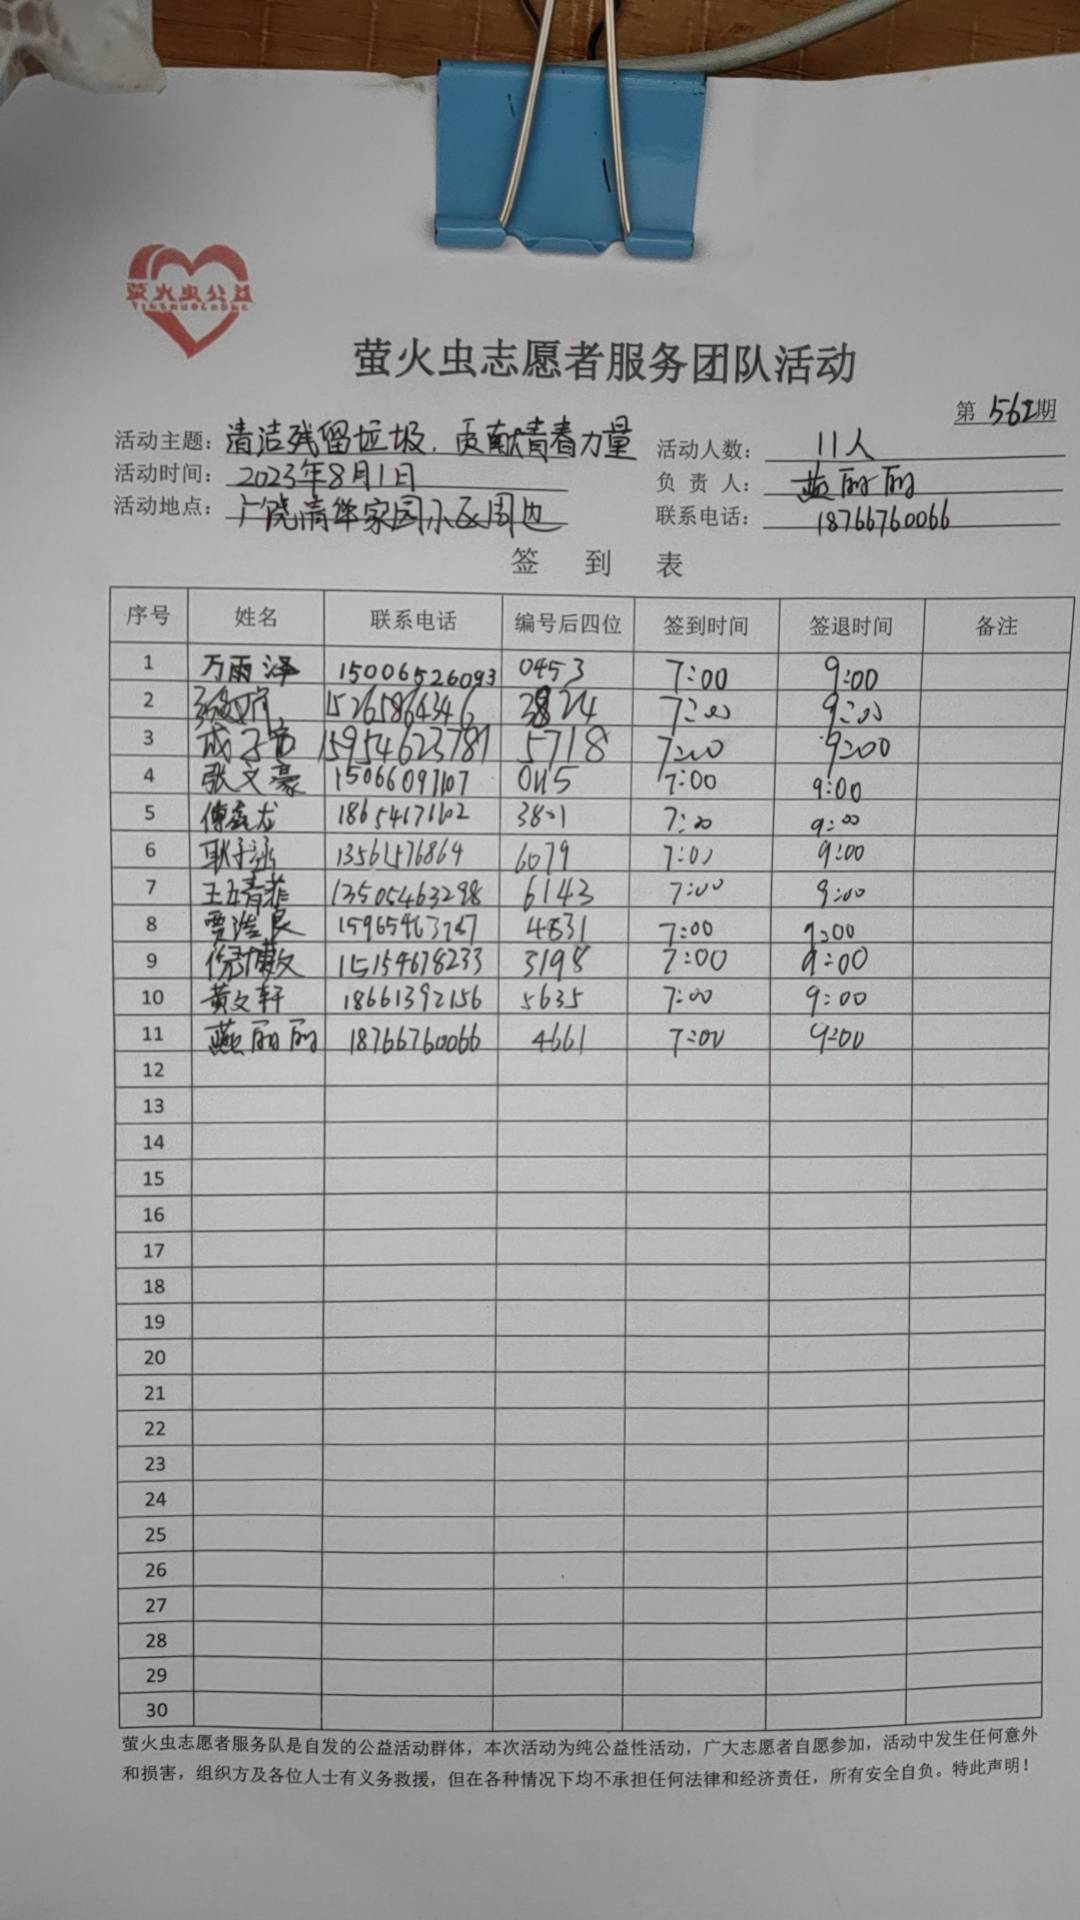 萤火虫公益
YINGHUOCHONG
萤火虫志愿者服务团队活动
第562期
活动主题：清洁残留垃圾，贡献青春力量 活动人数：11人
活动时间：2023年8月1日 负责人：燕丽丽
活动地点：广饶清华家园小区周边 联系电话：18766760066
签到表
序号 姓名 联系电话 编号后四位 签到时间 签退时间 备注
1 万雨泽 15006526093 0453 7:00 9:00
2 15265864346 3824 7:00 9:00
3 15954623781 5718 7:00 9:00
4 张文豪 15066097107 0115 7:00 9:00
5 18654171602 3801 7:00 9:00
6 13561576864 6079 7:00 9:00
7 13505463298 6143 7:00 9:00
8 贾浩良 4831 7:00 9:00
9 15154678233 3198 7:00 9:00
10 黄文轩 18661392156 5635 7:00 9:00
11 燕丽丽 18766760066 4661 7:00 9:00
12
13
14
15
16
17
18
19
20
21
22
23
24
25
26
27
28
29
30
萤火虫志愿者服务队是自发的公益活动群体，本次活动为纯公益性活动，广大志愿者自愿参加，活动中发生任何意外
和损害，组织方及各位人士有义务救援，但在各种情况下均不承担任何法律和经济责任，所有安全自负。特此声明！